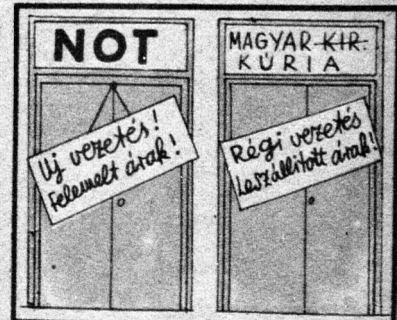 NOT
Uj vezetés!
Felemelt árak!
MAGYAR KIR.
KÚRIA
Régi vezetés
Leszállított árak!